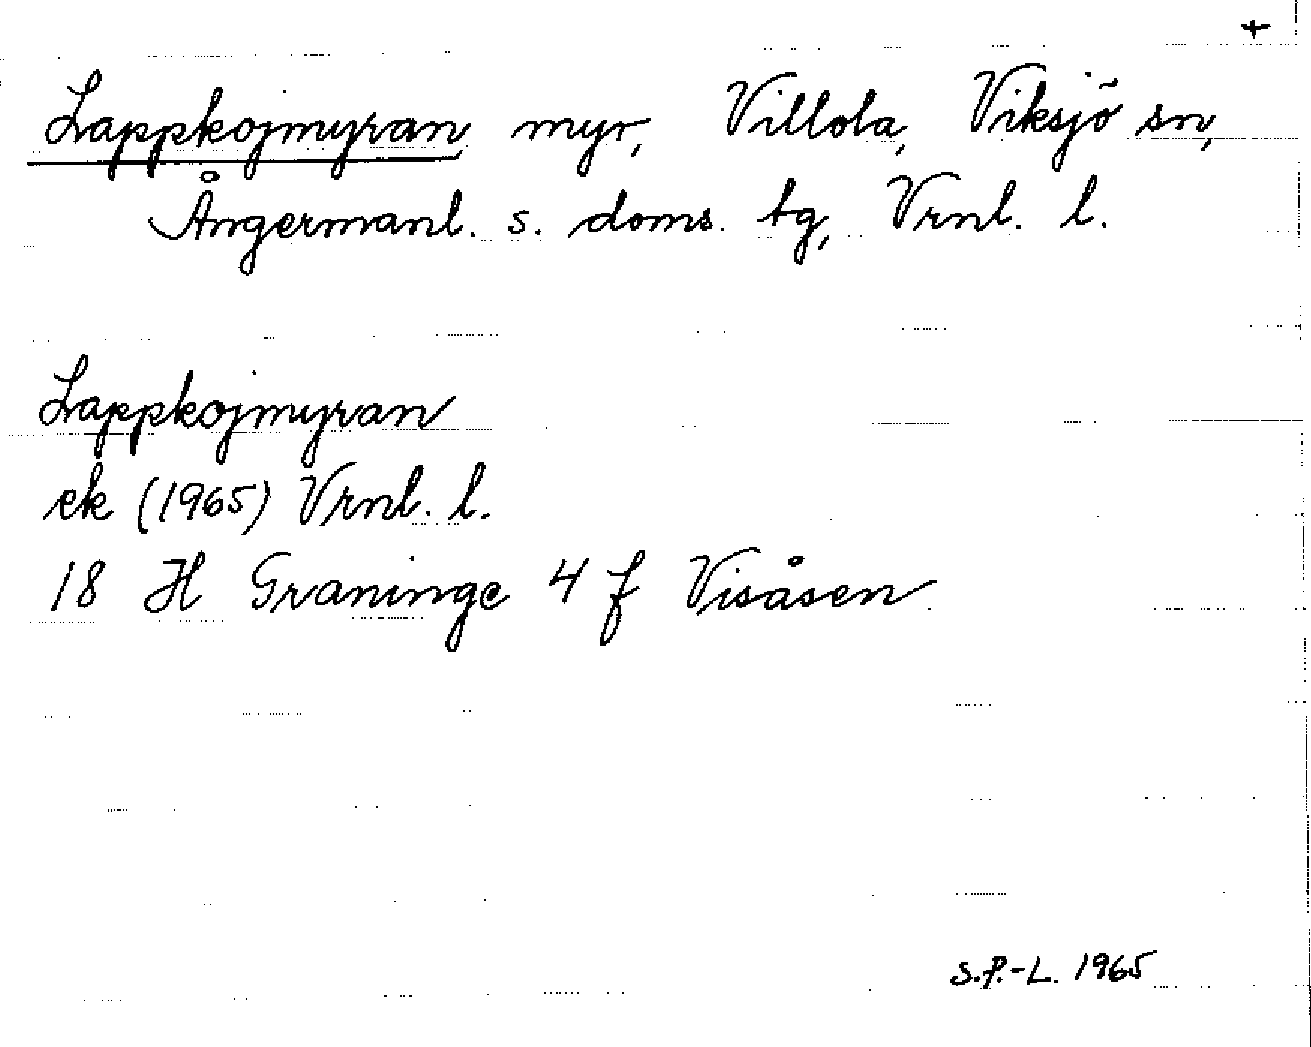 +
Lappkojmyran, myr, Villola, Viksjö sn,
Ångermanl. s. doms. tg, Vrnl. l.
Lappkojmyran
ek (1965) Vrnl. l.
18 H Graninge 4 f Visåsen
S.P.-L. 1965